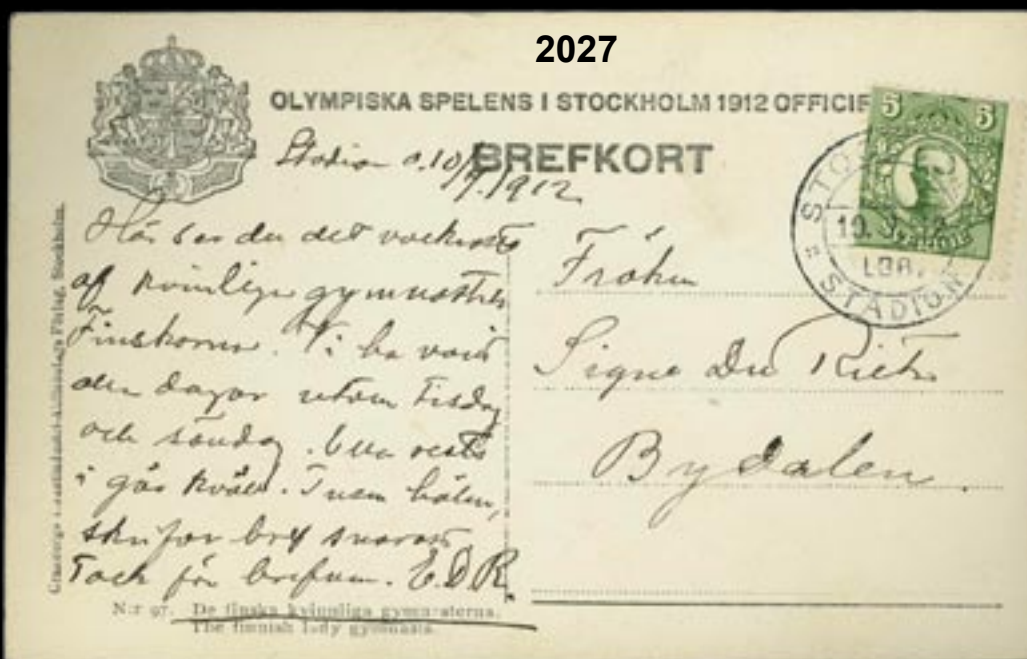 2027
OLYMPISKA SPELENS I STOCKHOLM 1912 OFFICIE
BREFKORT
Stadion d. 10/7. 1912
5 5
STADION
10. 7. 12
LBR.
Här ser du det vackraste
af kvinliga gymnaster
Finskorna. Vi ha varit
alla dagar utom Tisdag
och söndag. reste
i går kväll.
skrifver bref snarast
Tack för brefven. E.D.R.
Fröken
Signe Du Rietz
Bydalen.
Granbergs Konstindustri-Aktiebolags Förlag, Stockholm.
N:r 97. De finska kvinnliga gymnasterna.
The finnish lady gymnasts.